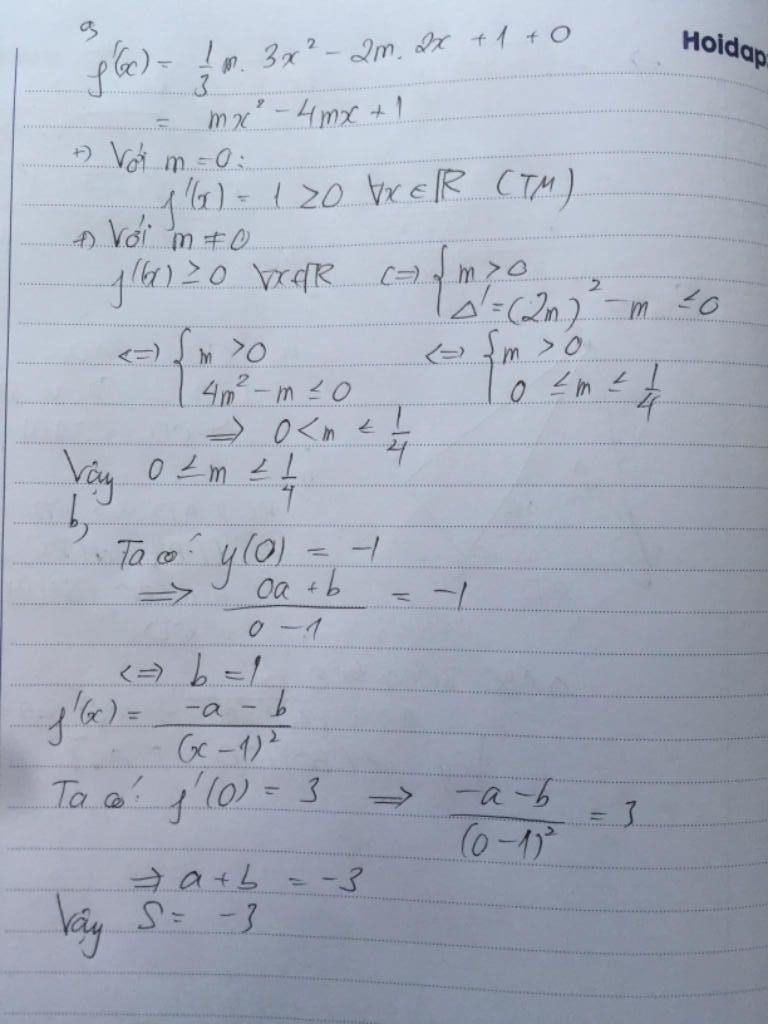 a,
f'(x) = 1/3 m. 3x² - 2m. 2x + 1 + 0
Hoidap
= mx² - 4mx + 1
+) Với m = 0:
f'(x) = 1 ≥ 0 ∀x ∈ ℝ (TM)
+) Với m ≠ 0
f'(x) ≥ 0 ∀x ∈ ℝ <=> { m > 0
Δ' = (2m)² - m ≤ 0
<=> { m > 0 <=> { m > 0
4m² - m ≤ 0 0 ≤ m ≤ 1/4
=> 0 < m ≤ 1/4
Vậy 0 ≤ m ≤ 1/4
b,
Ta có: y(0) = -1
=> (0a + b)/(0 - 1) = -1
<=> b = 1
f'(x) = (-a - b)/(x - 1)²
Ta có: f'(0) = 3 => (-a - b)/(0 - 1)² = 3
=> a + b = -3
Vậy S = -3